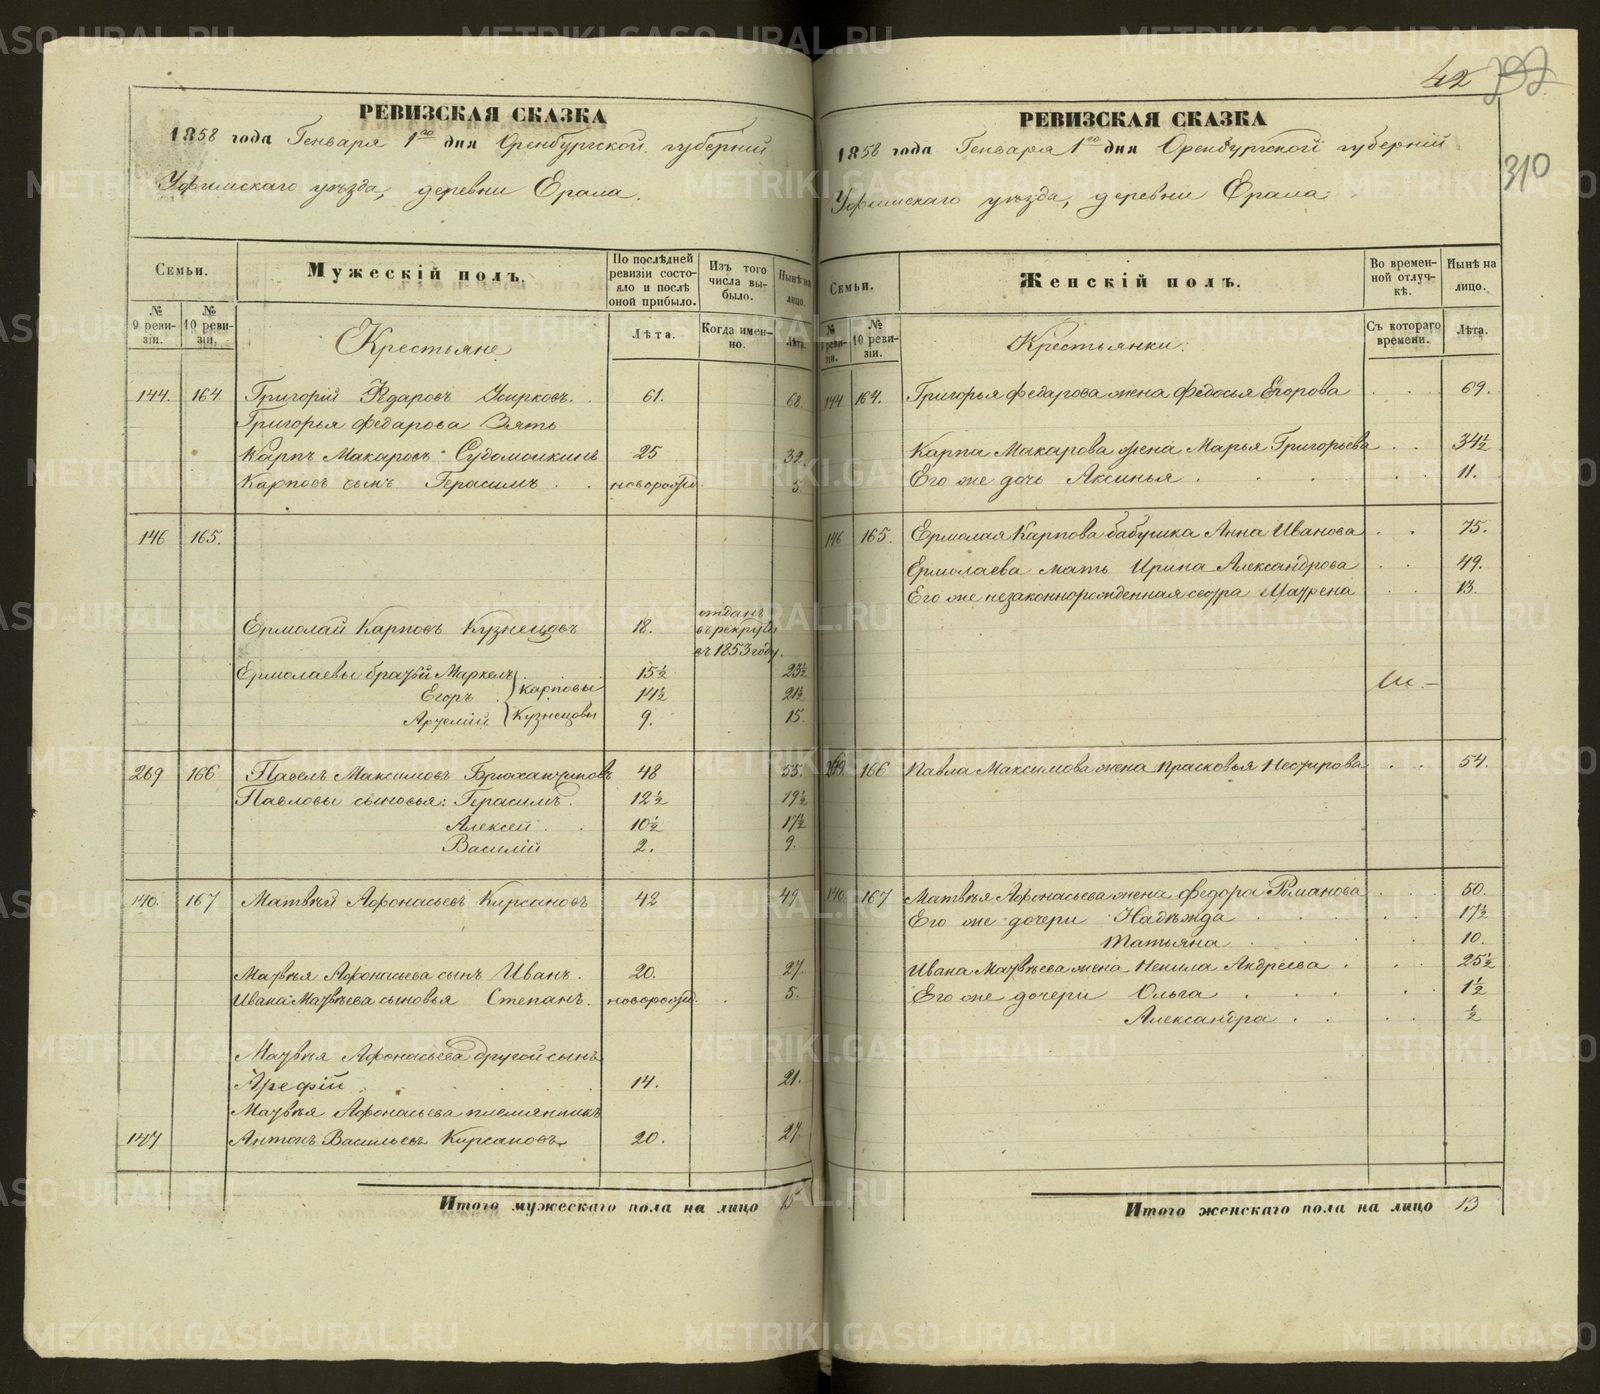 42
310
РЕВИЗСКАЯ СКАЗКА
1858 года Генваря 1го дня Оренбургской губерніи
Уфимскаго уѣзда, деревни Ерала.
Семьи.
Мужескій полъ.
По послѣдней ревизіи состояло и послѣ оной прибыло.
Изъ того числа выбыло.
Нынѣ на лицо.
№ 9 ревизіи.
№ 10 ревизіи.
Лѣта.
Когда именно.
Лѣта.
Крестьяне
144. 164 Григорій Федаровъ Усирковъ. 61. 68.
Григорья Федарова Зять
Карпъ Макаровъ Судомойкинъ 25 32.
Карповъ сынъ Герасимъ новорожд. 5.
146 165.
Ермолай Карповъ Кузнецовъ 18. отданъ въ рекруты въ 1853 году.
Ермолаевы братьи Маркелъ 15½ 23½
Егоръ Карповы 14½ 21½
Артемій Кузнецовы 9. 15.
269 166 Павелъ Максимовъ 48 55.
Павловы сыновья: Герасимъ. 12½ 19½
Алексей 10½ 17½
Василій 2. 9.
140. 167 Матвѣй Афонасьевъ Кирсановъ 42 49.
Матвѣя Афонасьева сынъ Иванъ. 20. 27.
Ивана Матвѣева сыновья Степанъ. новорожд. 5.
Матвѣя Афонасьева другой сынъ
Арефій 14. 21.
Матвѣя Афонасьева племянникъ
147 Антонъ Васильевъ Кирсановъ 20. 27.
Итого мужескаго пола на лицо 15
РЕВИЗСКАЯ СКАЗКА
1858 года Генваря 1го дня Оренбургской губерніи
Уфимскаго уѣзда, деревни Ерала.
Семьи.
Женскій полъ.
Во временной отлучкѣ.
Нынѣ на лицо.
№ 9 ревизіи.
№ 10 ревизіи.
Съ котораго времени.
Лѣта.
Крестьянки.
144 164. Григорья Федарова жена Федосья Егорова 69.
Карпа Макарова жена Марья Григорьева 34½
Его же дочь Аксинья 11.
146 165. Ермолая Карпова бабушка Анна Иванова 75.
Ермолаева мать Ирина Александрова 49.
Его же незаконнорожденная сестра Матрена 13.
269. 166 Павла Максимова жена Прасковья Нестирова 54.
140. 167 Матвѣя Афонасьева жена Федора Романова 50.
Его же дочери Надѣжда 17½
Татьяна 10.
Ивана Матвѣева жена Ненила Андреева 25½
Его же дочери Ольга 1½
Александра ½
Итого женскаго пола на лицо 13
METRIKI.GASO-URAL.RU